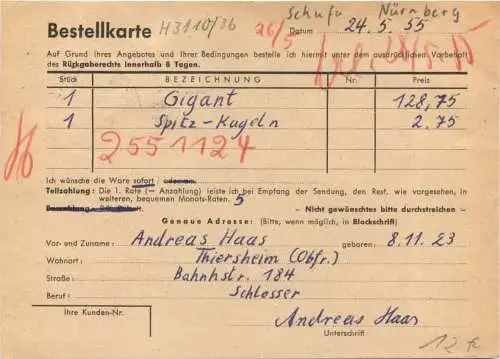 Schufa Nürnberg
Bestellkarte H3110/36 26/5 Datum 24.5.55
Auf Grund Ihres Angebotes und Ihrer Bedingungen bestelle ich hiermit unter dem ausdrücklichen Vorbehalt
des Rückgaberechts innerhalb 8 Tagen.
Stück BEZEICHNUNG Nr. Preis
1 Gigant 128,75
1 Spitz-Kugeln 2.75
2551124
Ich wünsche die Ware sofort
Teilzahlung: Die 1. Rate (— Anzahlung) leiste ich bei Empfang der Sendung, den Rest, wie vorgesehen, in
weiteren, bequemen Monats-Raten. 5
— Nicht gewünschtes bitte durchstreichen —
Genaue Adresse: (Bitte, wenn möglich, in Blockschrift)
Vor- und Zuname: Andreas Haas geboren: 8.11.23
Wohnort: Thiersheim (Obfr.)
Straße: Bahnhstr. 184
Beruf: Schlosser
Ihre Kunden-Nr.
Andreas Haas
Unterschrift